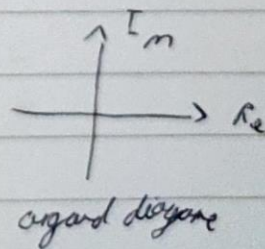 Im
Re
argand diagrame